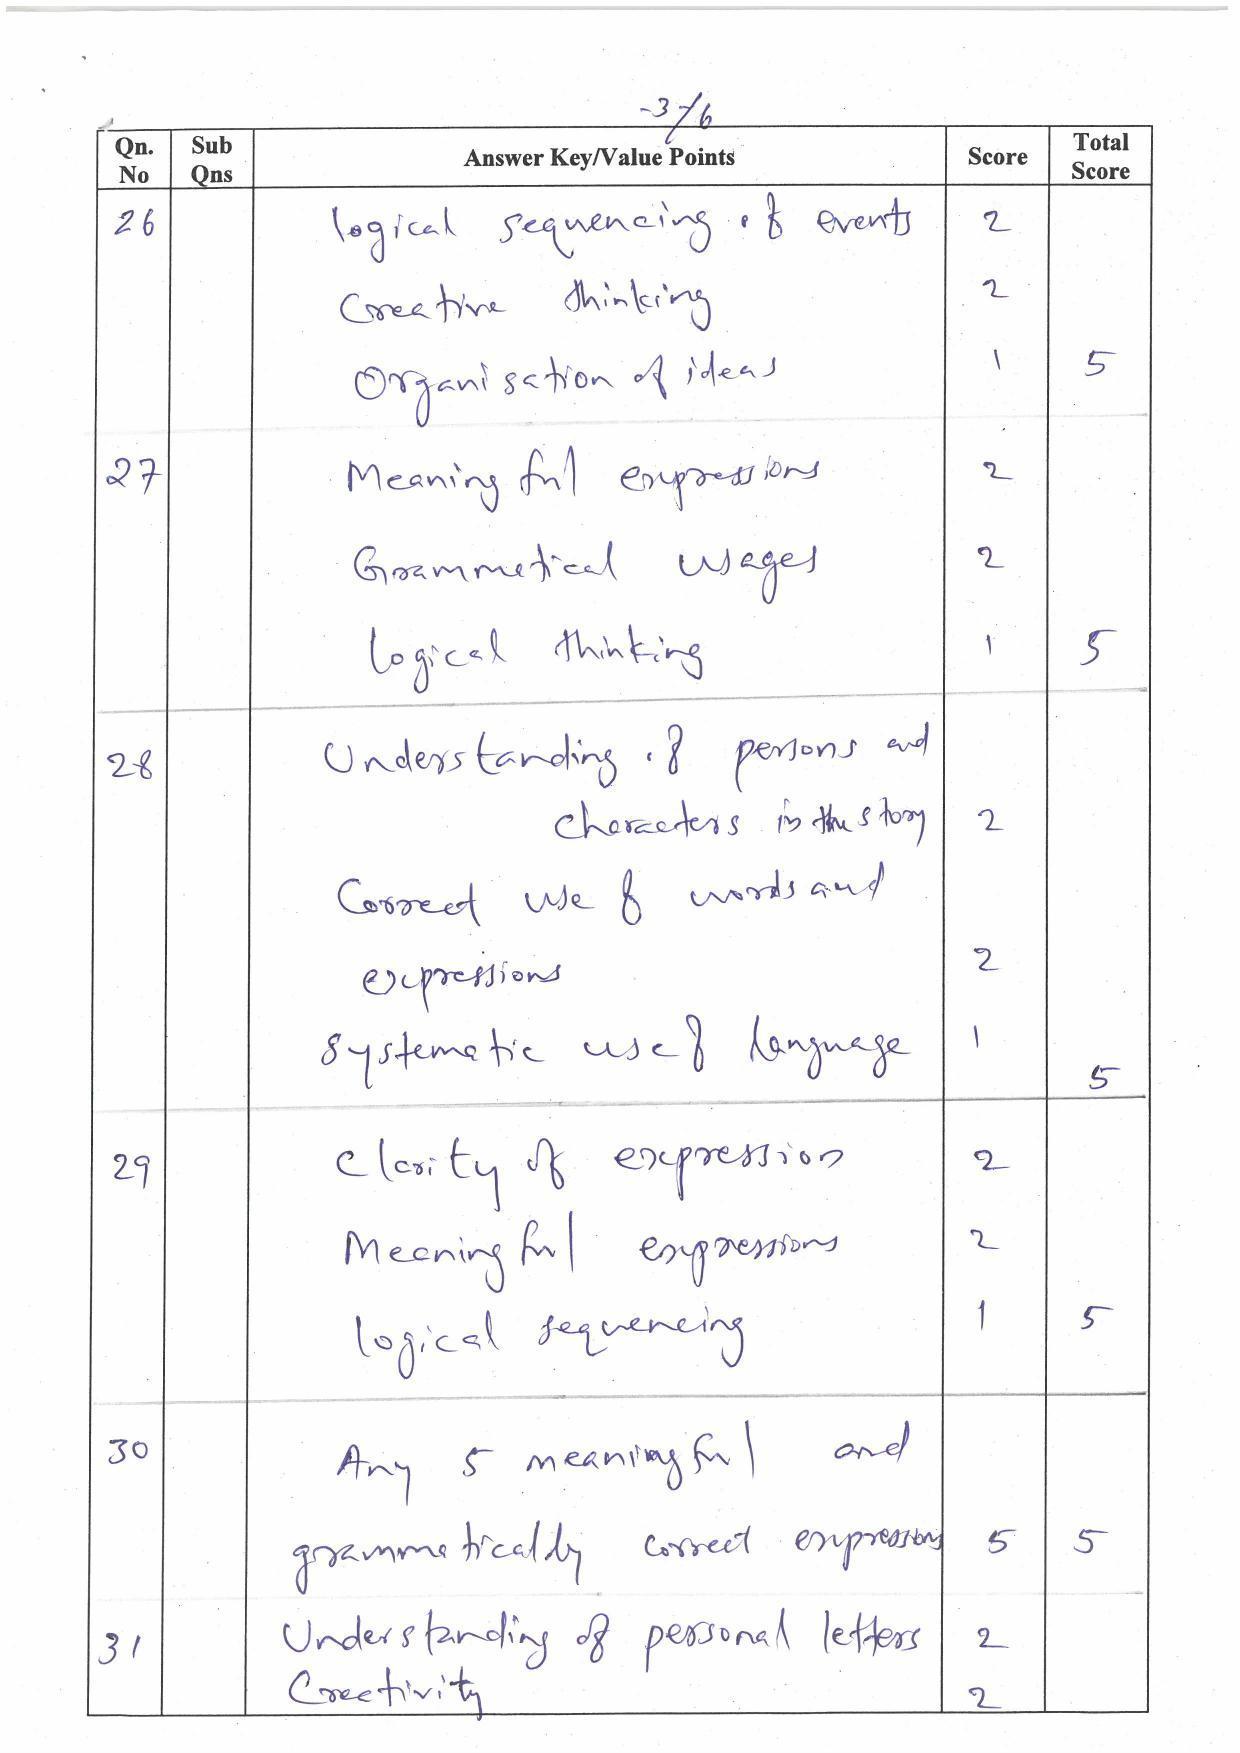 -3-/6
Qn. No Sub Qns Answer Key/Value Points Score Total Score
26 logical sequencing of events 2
Creative thinking 2
Organisation of ideas 1 5
27 Meaningful expressions 2
Grammetical usages 2
logical thinking 1 5
28 Understanding of persons and
characters in the story 2
Correct use of words and
expressions 2
Systematic use of language 1
5
29 Clarity of expression 2
Meaningful expressions 2
logical sequencing 1 5
30 Any 5 meaningful and
grammatically correct expressions 5 5
31 Understanding of personal letters 2
Creativity 2